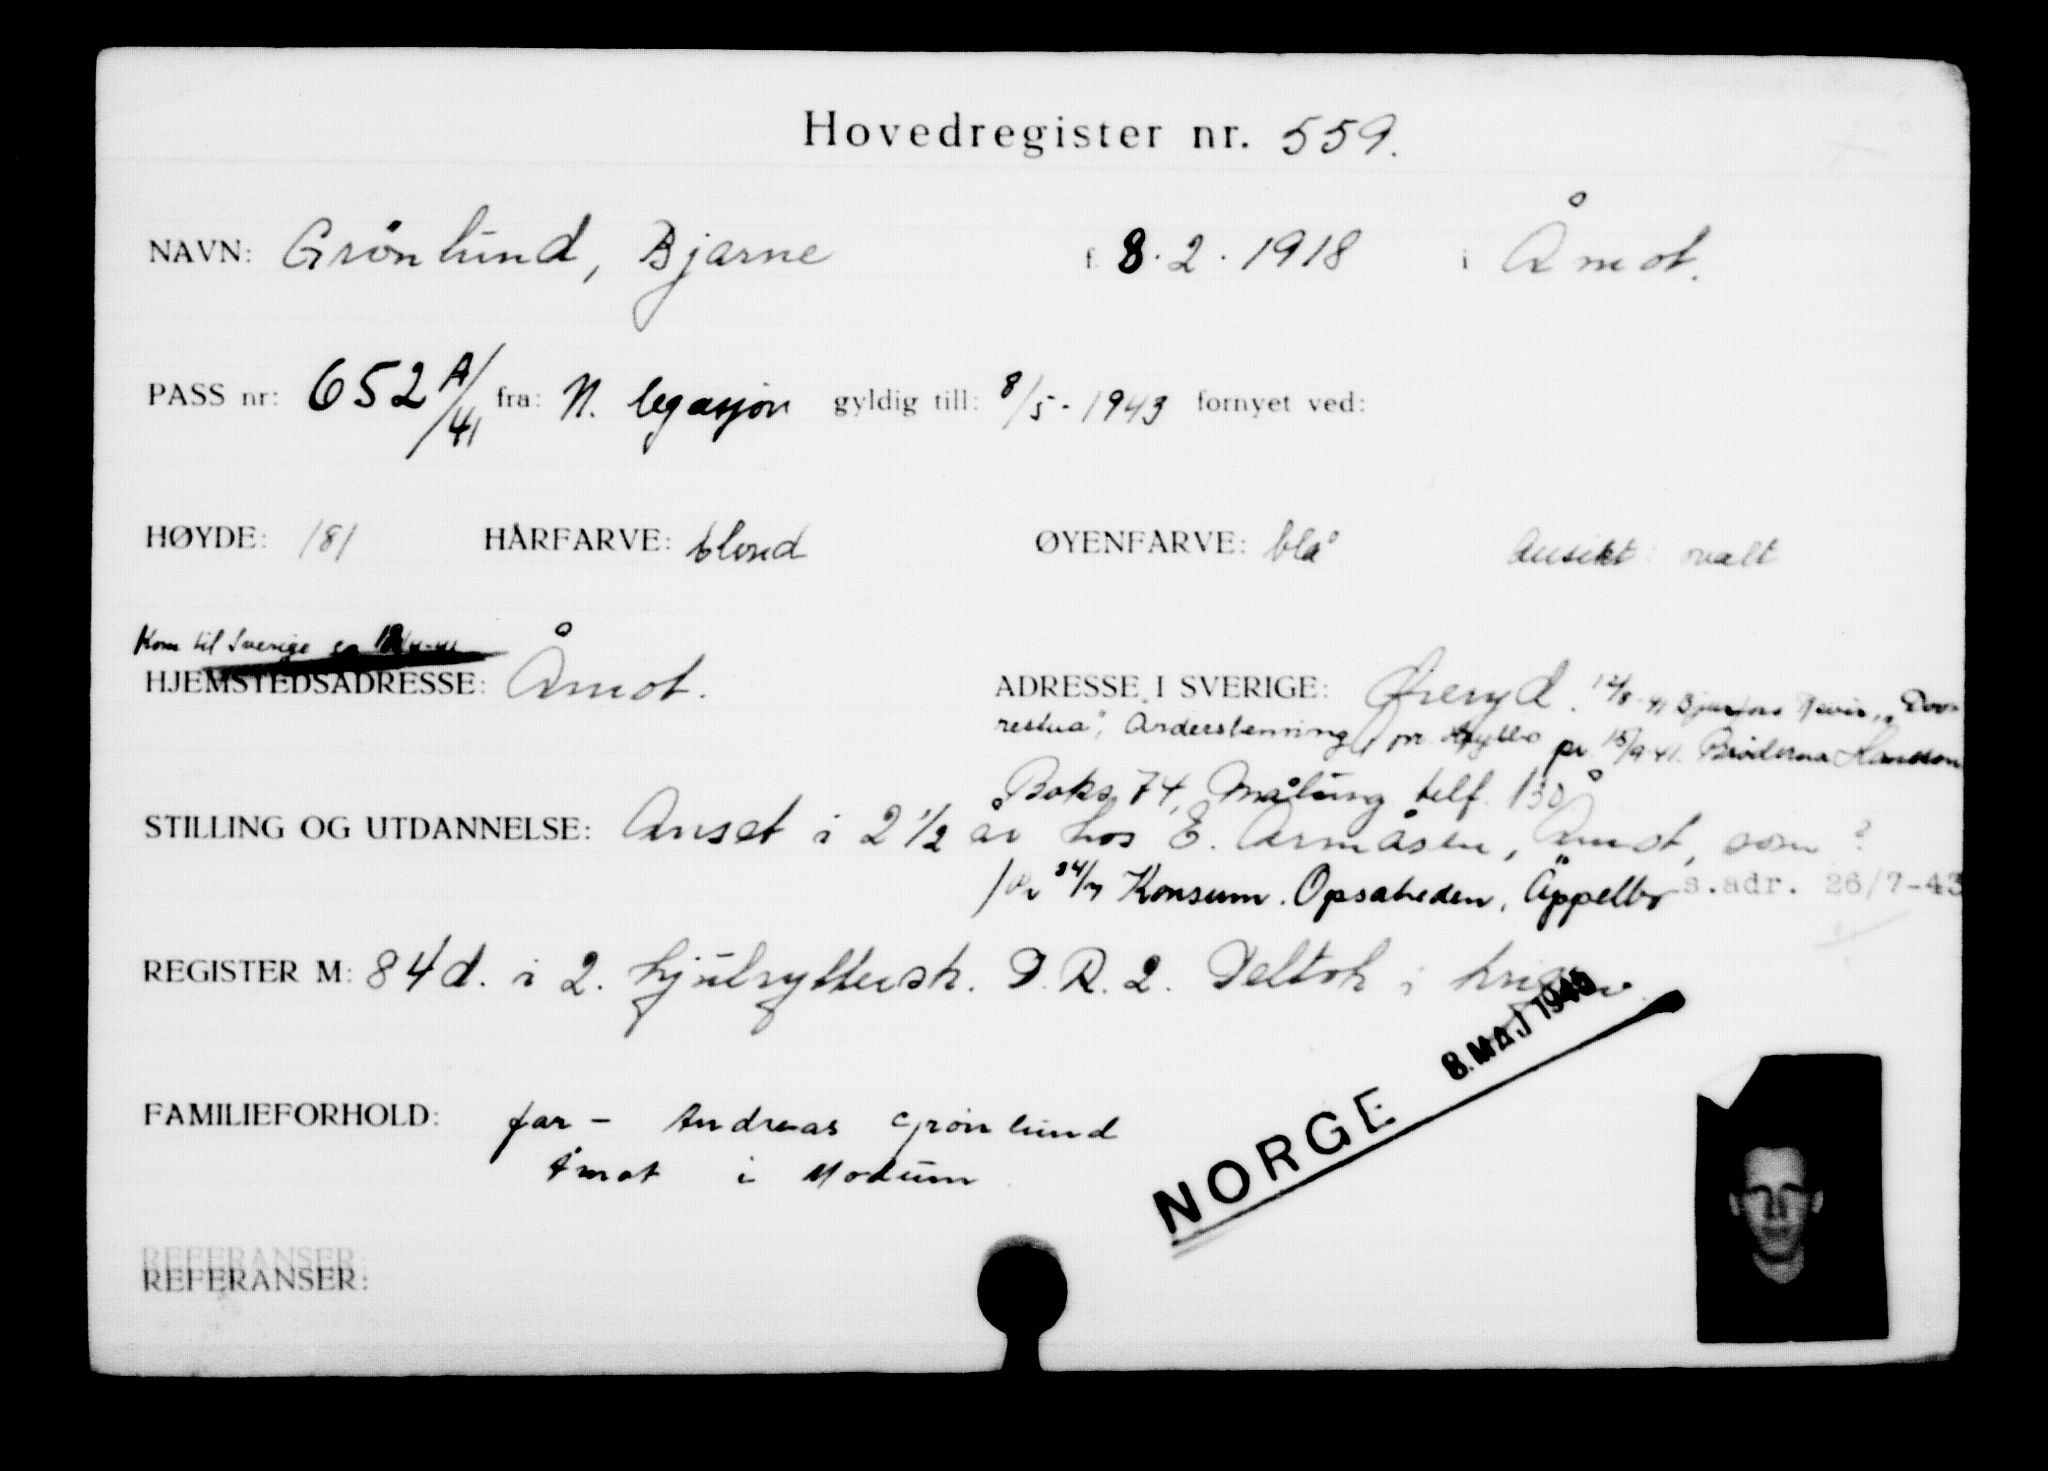 Hovedregister nr. 559.
NAVN: Grönlund, Bjarne f. 8.2.1918 i Åmot.
PASS nr: 652 A/41 fra: N. legasjon gyldig till: 8/5-1943 fornyet ved:
HØYDE: 181 HÅRFARVE: blond ØYENFARVE: blå Ansikt: ovalt
Kom til Sverige
HJEMSTEDSADRESSE: Åmot. ADRESSE I SVERIGE: Öreryd. 12/8-41 Bjurfors Revir,
pr. 15/9-41. Bröderna Hansson
Boks 74, Malung telf. 130
STILLING OG UTDANNELSE: Anset i 2 1/2 år hos E. Armåsen, Åmot, som ?
24/7 Konsum. Opsaheden, Äppelbo s.adr. 26/7-43
REGISTER M: 84d. i 2. hjulryttersk. D.R.2. Deltok i krigen.
8. MAJ 1945
FAMILIEFORHOLD: far - Andreas Grönlund
Åmot i Modum
NORGE
REFERANSER:
REFERANSER: